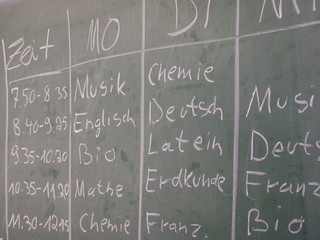 Zeit MO DI MI
7.50-8.35 Musik Chemie
8.40-9.25 Englisch Deutsch Musi
9.35-10.20 Bio Latein Deuts
10.35-11.20 Mathe Erdkunde Franz
11.30-12.15 Chemie Franz. Bio